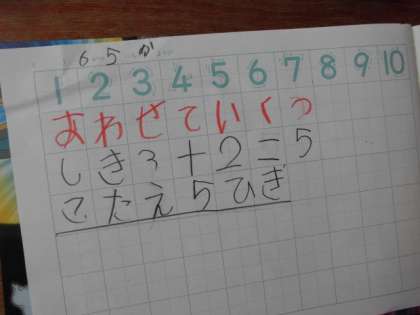 6 5 か
1 2 3 4 5 6 7 8 9 10
あわせていくつ
しき3+2=5
こたえ5ひき